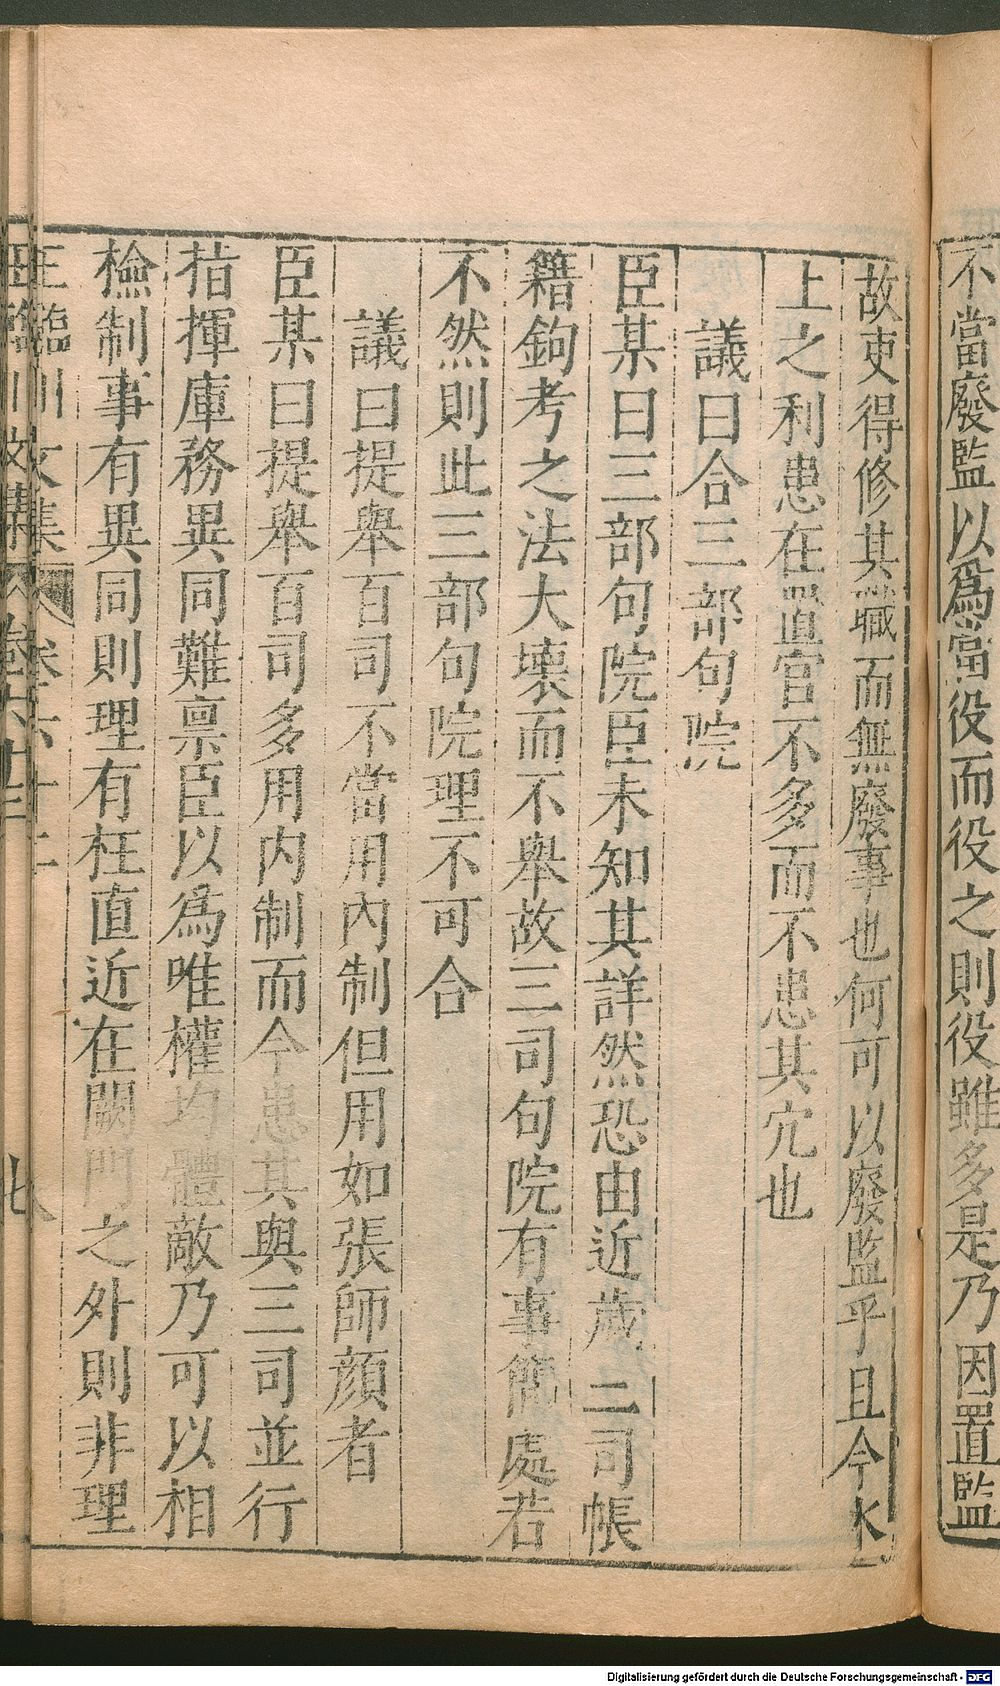 不當廢監以爲當役而役之則役雖多是乃因置監
故吏得修其職而無廢事也何可以廢監乎且今水
上之利患在置官不多而不患其宂也
議曰合三部句院
臣某曰三部句院臣未知其詳然恐由近歲三司帳
籍鉤考之法大壞而不舉故三司句院有事簡處若
不然則此三部句院理不可合
議曰提舉百司不當用內制但用如張師顔者
臣某曰提舉百司多用内制而今患其與三司並行
指揮庫務異同難禀臣以爲唯權均體敵乃可以相
檢制事有異同則理有枉直近在闕門之外則非理
王臨川文集 卷六十二 八
Digitalisierung gefördert durch die Deutsche Forschungsgemeinschaft - DFG